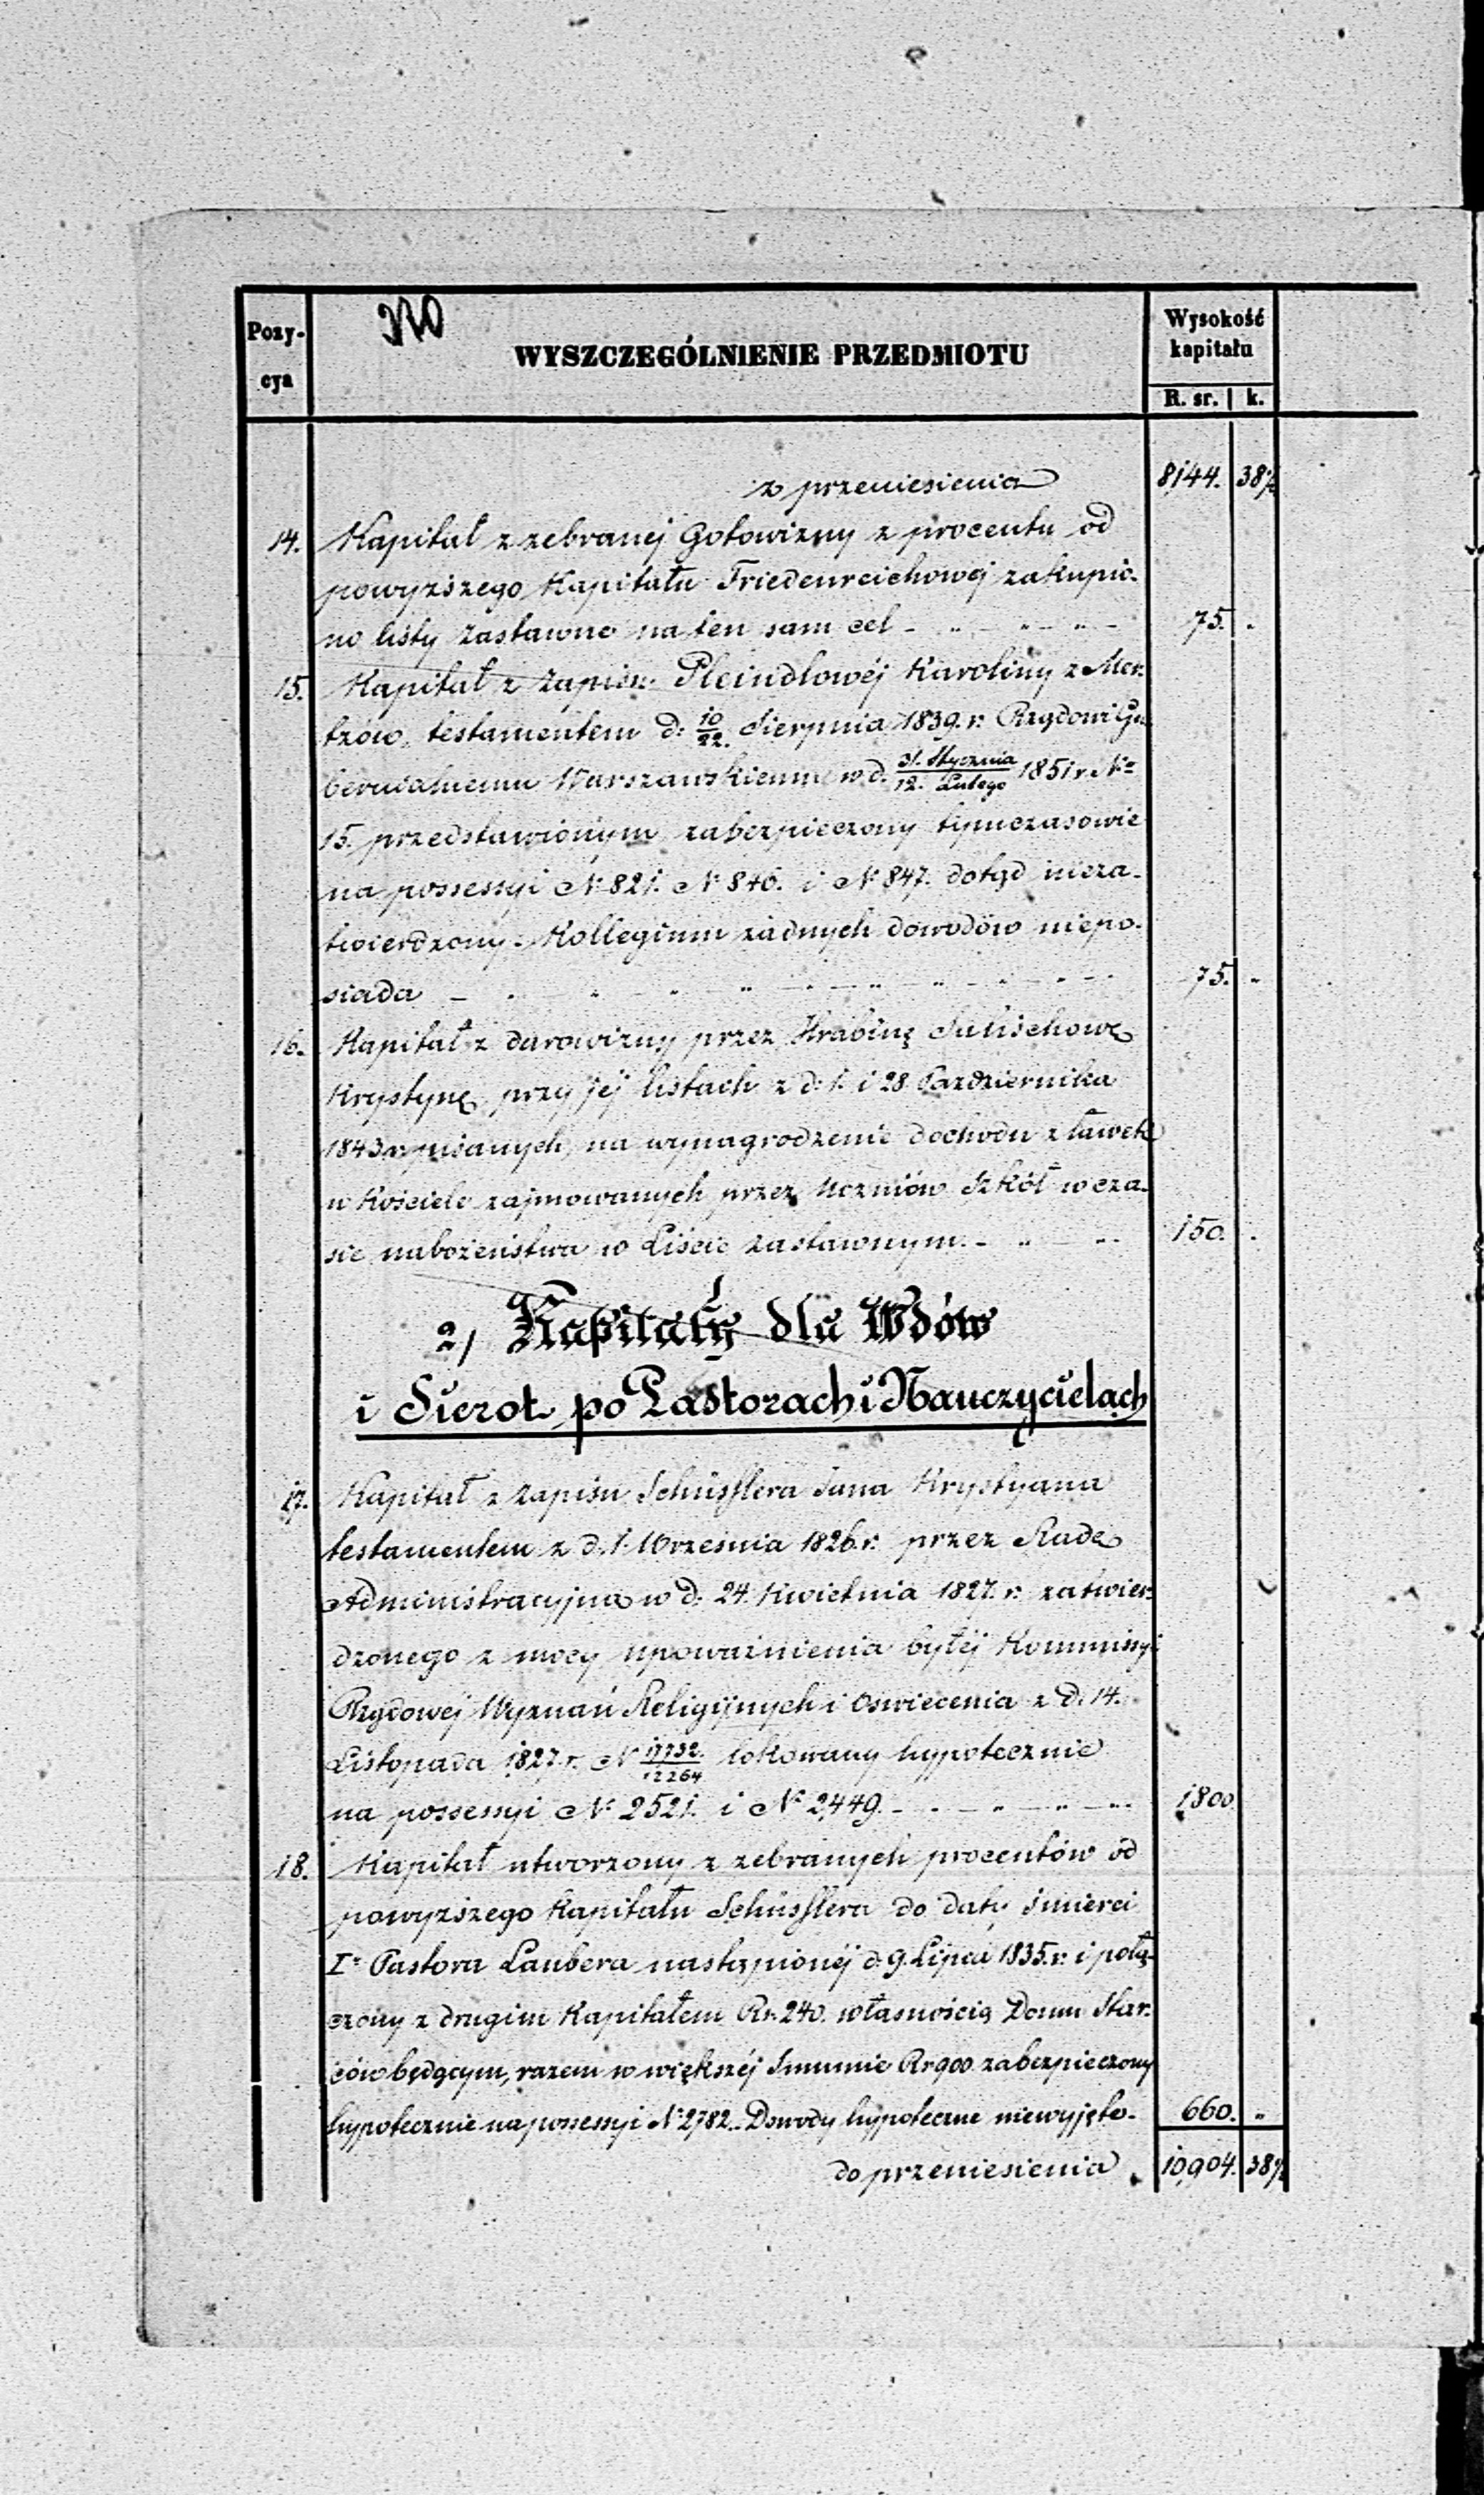 Pozy-
cya
WYSZCZEGÓLNIENIE PRZEDMIOTU
Wysokość
kapitału
R. sr. k.
z przeniesienia 8144. 38½
14. Kapitał z zebranej Gotowizny z procentu od
powyższego Kapitału Friedenreichowej zakupio-
no listy zastawne na ten sam cel 75. "
15. Kapitał z Zapisu Pleindlowéj Karoliny z Mer-
tzów, testamentem d: 10/22. Sierpnia 1839. r. Rządowi Gu-
bernialnemu Warszawskiemu w d. 31. Stycznia/12. Lutego 1851 r. No
15. przedstawionym zabezpieczony tymczasowie
na possessyi No 821. No 846. i No 847. dotąd nieza-
twierdzony. Kollegium żadnych dowodów niepo-
siada 75. "
16. Kapitał z darowizny przez Hrabinę Salischową
Krystynę przy jéj listach z d: 1. i 28 Października
1843 r. pisanych, na wynagrodzenie dochodu z ławek
w Kościele zajmowanych przez Uczniów Szkół w cza-
sie nabożeństwa w Liście zastawnym. 150. "
2) Kapitały dla Wdów
i Sierot po Pastorach i Nauczycielach
17. Kapitał z Zapisu Schüsslera Jana Krystyana
testamentem z d. 1. Września 1826 r. przez Radę
Administracyjną w d. 24. Kwietnia 1827. r. zatwier-
dzonego z mocy upoważnienia byłéj Kommissyi
Rządowej Wyznań Religijnych i Oswiecenia z d. 14.
Listopada 1827. r. No 17732./12264 lokowany hypotecznie
na possessyi No 2521. i No 2,449. 1800.
18. Kapitał utworzony z zebranych procentów od
powyższego Kapitału Schüsslera do daty śmierci
Io Pastora Laubera nastąpionéj d. 9. Lipca 1835. r. i połą-
czony z drugim Kapitałem Rs. 240. własnością Domu Star-
ców będącym, razem w większéj Summie Rs 900 zabezpieczony
hypotecznie na possessyi No 2782. Dowody hypoteczne niewyjęte. 660. "
do przeniesienia 10,904. 38½